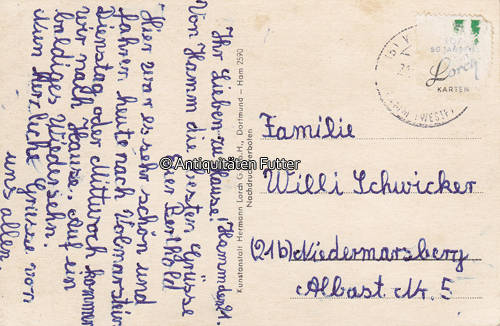 Hamm, den 21.
Ihr Lieben zu Hause!
Von Hamm die ersten Grüsse
Hier war es sehr schön und
fahren heute nach Volmarstein
Dienstag oder Mittwoch kommen
wir nach Hause. Auf ein
baldiges Wiedersehn.
Nun Herzliche Grüsse von
uns allen.
Kunstanstalt Hermann Lorch G.m.b.H., Dortmund – Ham 2590
Nachdruck verboten
SO LANDSCH.
Lorch
KARTEN
(WESTF)
Familie
Willi Schwicker
(21b) Niedermarsberg
Albast. Nr. 5
© Antiquitäten Futter